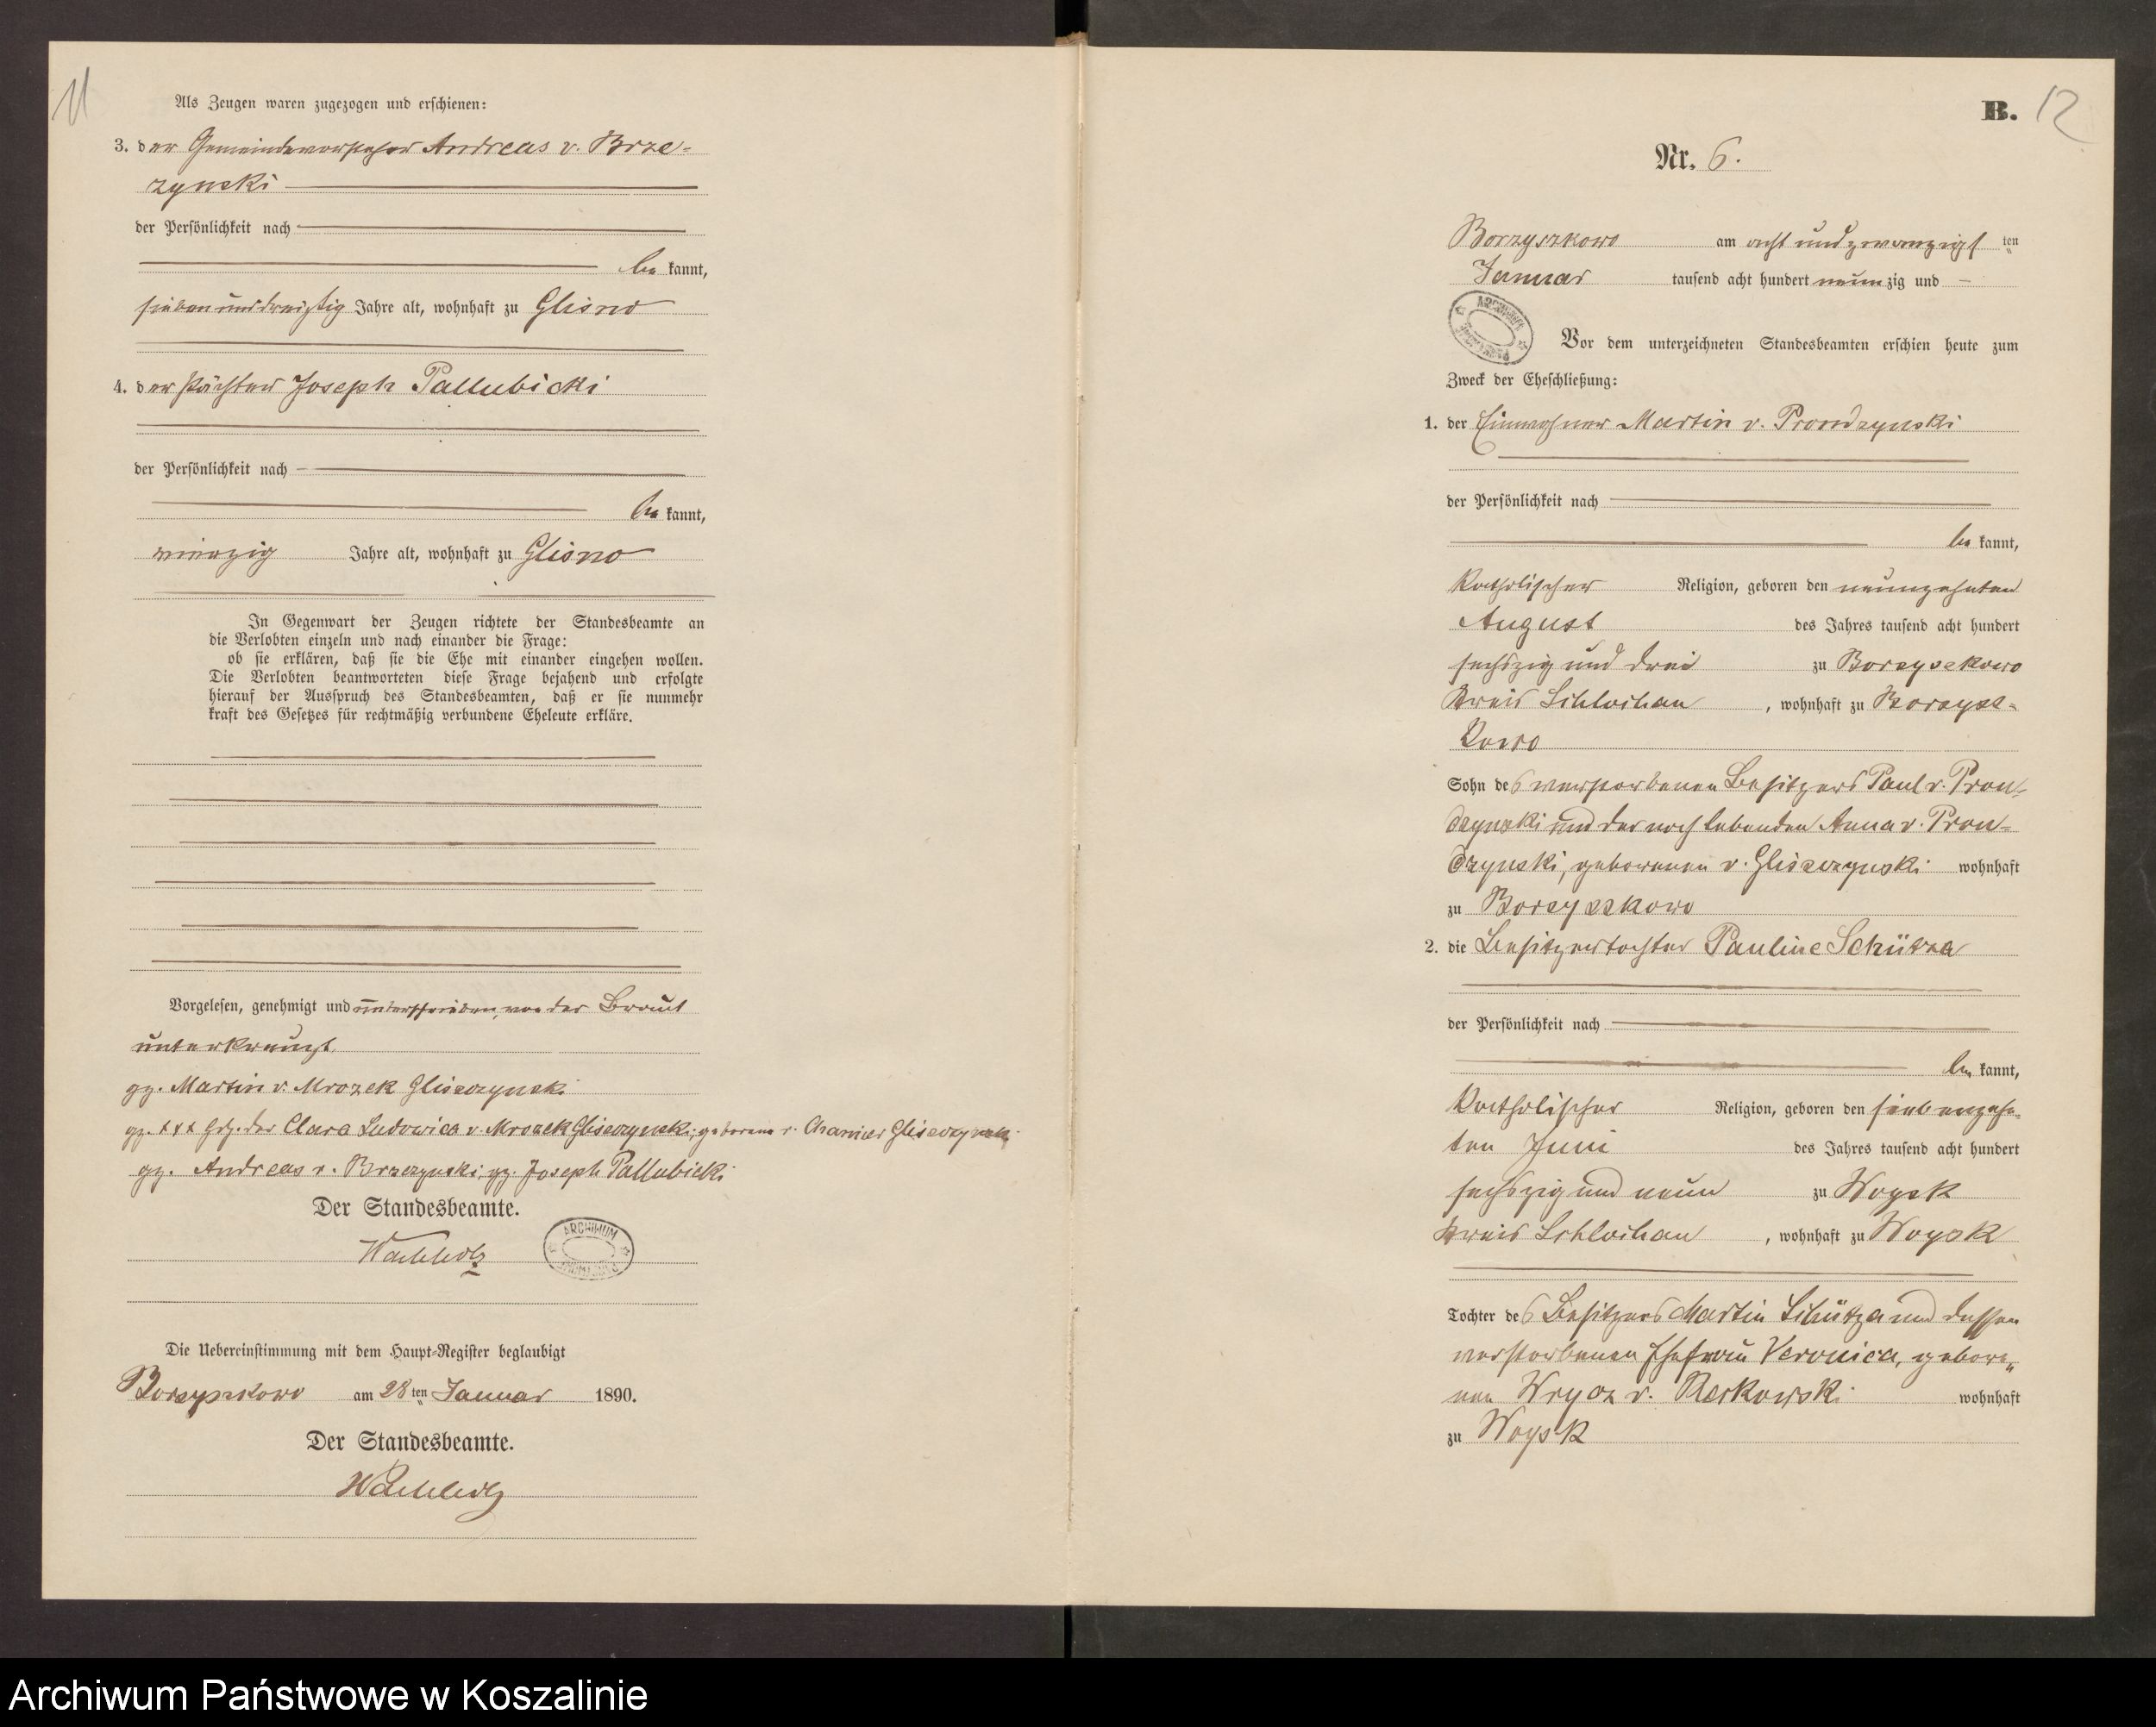 11
Als Zeugen waren zugezogen und erschienen:
3. der Gemeindevorsteher Andreas v. Brze-
zynski
der Persönlichkeit nach
be kannt,
siebenunddreißig Jahre alt, wohnhaft zu Glisno
4. der Pächter Joseph Pallubicki
der Persönlichkeit nach
be kannt,
vierzig Jahre alt, wohnhaft zu Glisno
In Gegenwart der Zeugen richtete der Standesbeamte an
die Verlobten einzeln und nach einander die Frage:
ob sie erklären, daß sie die Ehe mit einander eingehen wollen.
Die Verlobten beantworteten diese Frage bejahend und erfolgte
hierauf der Ausspruch des Standesbeamten, daß er sie nunmehr
kraft des Gesetzes für rechtmäßig verbundene Eheleute erkläre.
Vorgelesen, genehmigt und unterschrieben, von der Braut
unterkreuzt
gz. Martin v. Mrozek Gliszczynski
gz. xxx Hdz. der Clara Ludowica v. Mrozek Gliszczynski, geborene v. Chamier Gliszczynski
gz. Andreas v. Brzezynski, gz. Joseph Pallubicki
Der Standesbeamte.
Wachholz
ARCHIWUM
Die Uebereinstimmung mit dem Haupt-Register beglaubigt
Borzyszkowo am 28ten Januar 1890.
Der Standesbeamte.
Wachholz
B. 12
Nr. 6.
Borzyszkowo am acht und zwanzigsten
Januar tausend acht hundert neunzig und —
ARCHIWUM
Vor dem unterzeichneten Standesbeamten erschien heute zum
Zweck der Eheschließung:
1. der Einwohner Martin v. Prondzynski
der Persönlichkeit nach
be kannt,
katholischer Religion, geboren den neunzehnten
August des Jahres tausend acht hundert
sechszig und drei zu Borzyszkowo
Kreis Schlochau, wohnhaft zu Borzysz-
kowo
Sohn des verstorbenen Besitzers Paul v. Pron-
dzynski und der noch lebenden Anna v. Pron-
dzynski, geborenen v. Gliszczynski wohnhaft
zu Borzyszkowo
2. die Besitzertochter Pauline Schütza
der Persönlichkeit nach
be kannt,
katholischer Religion, geboren den siebenzehn-
ten Juni des Jahres tausend acht hundert
sechszig und neun zu Woysk
Kreis Schlochau, wohnhaft zu Woysk
Tochter des Besitzers Martin Schütza und dessen
verstorbenen Ehefrau Veronica, gebore-
nen Wrycz v. Rekowski wohnhaft
zu Woysk
Archiwum Państwowe w Koszalinie